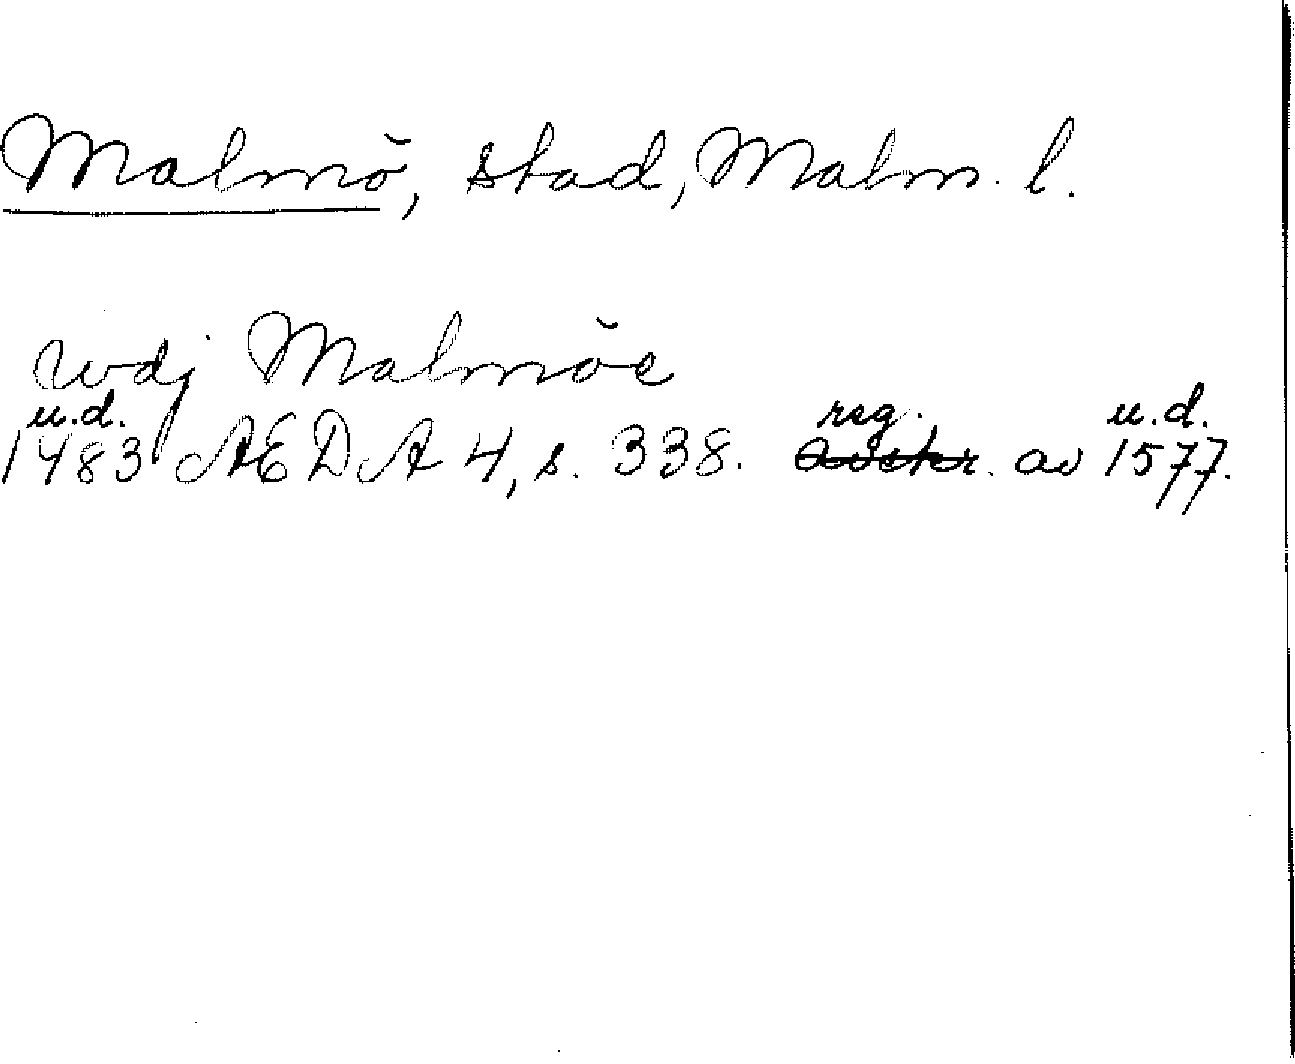 Malmö, stad, Malm. l.
wdj Malmöe
u.d. reg. u.d.
1483 AEDA 4, s. 338. avskr. av 1577.